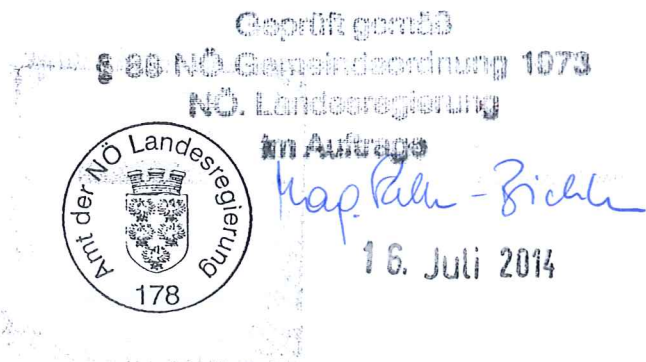 Geprüft gemäß
§ 88 NÖ Gemeindeordnung 1973
NÖ. Landesregierung
im Auftrage
Amt der NÖ Landesregierung
178
Mag.
16. Juli 2014